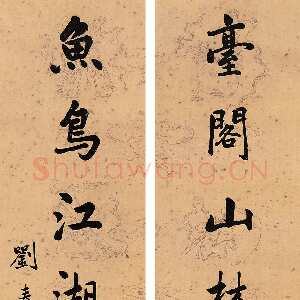 臺閣山林
魚鳥江湖
劉春
Shufawang.CN